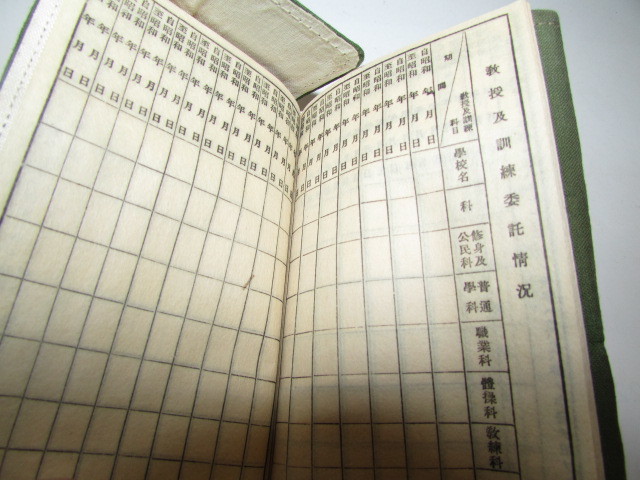 教授及訓練委託情況
期間
教授及訓練科目
學校名
科
修身及公民科
普通學科
職業科
體操科
敎練科
自昭和 年 月 日
至昭和 年 月 日
自昭和 年 月 日
至昭和 年 月 日
自昭和 年 月 日
至昭和 年 月 日
自昭和 年 月 日
至昭和 年 月 日
自昭和 年 月 日
至昭和 年 月 日
自昭和 年 月 日
至昭和 年 月 日
自昭和 年 月 日
至昭和 年 月 日
自昭和 年 月 日
至昭和 年 月 日